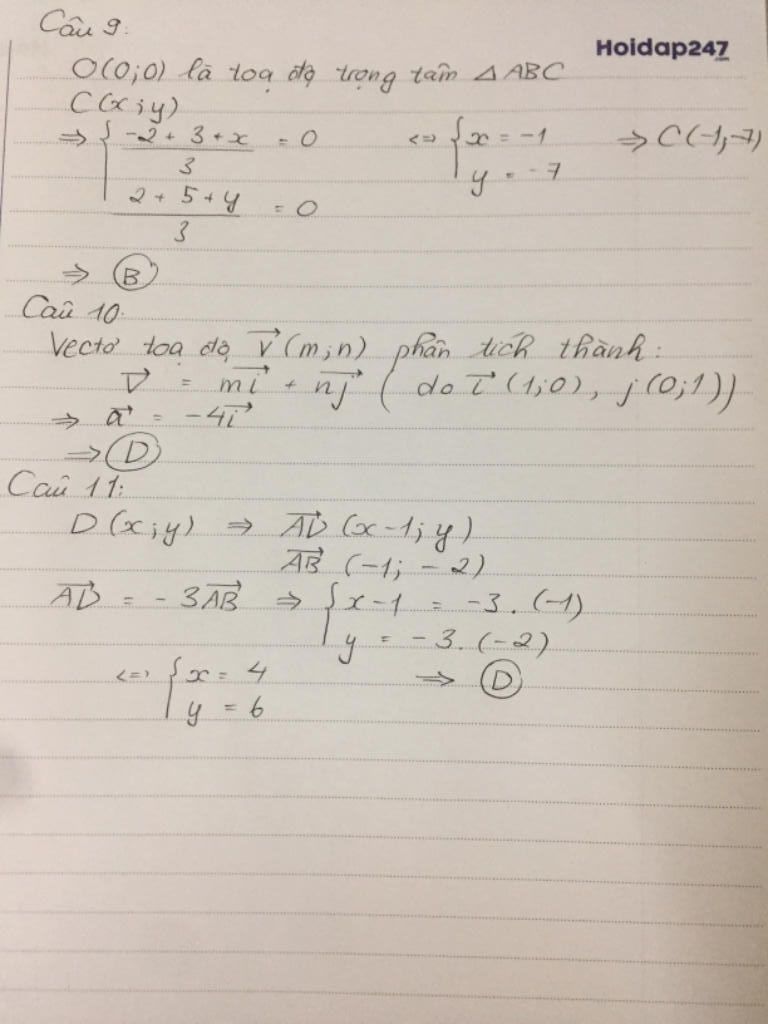 Câu 9:
Hoidap247
O(0;0) là toạ độ trọng tâm △ABC
C(x;y)
⇒ { (-2+3+x)/3 = 0 <=> { x = -1 ⇒ C(-1;-7)
(2+5+y)/3 = 0 y = -7
⇒ Ⓑ
Câu 10.
Vectơ toạ độ v⃗(m;n) phân tích thành:
v⃗ = mi⃗ + nj⃗ ( do i⃗ (1;0), j(0;1))
⇒ a⃗ = -4i⃗
⇒ Ⓓ
Câu 11:
D(x;y) ⇒ AD⃗ (x-1; y)
AB⃗ (-1; -2)
AD⃗ = -3AB⃗ ⇒ { x-1 = -3.(-1)
y = -3.(-2)
<=> { x = 4 ⇒ Ⓓ
y = 6